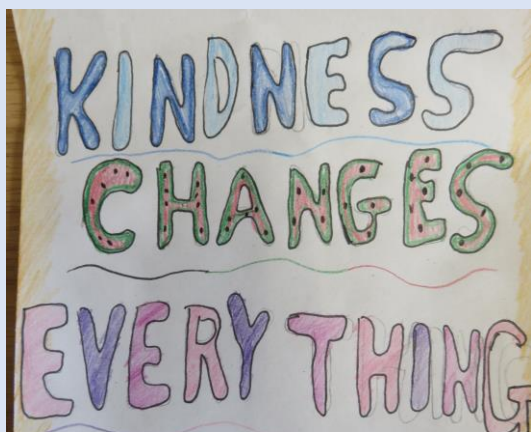 KINDNESS
CHANGES
EVERY THING